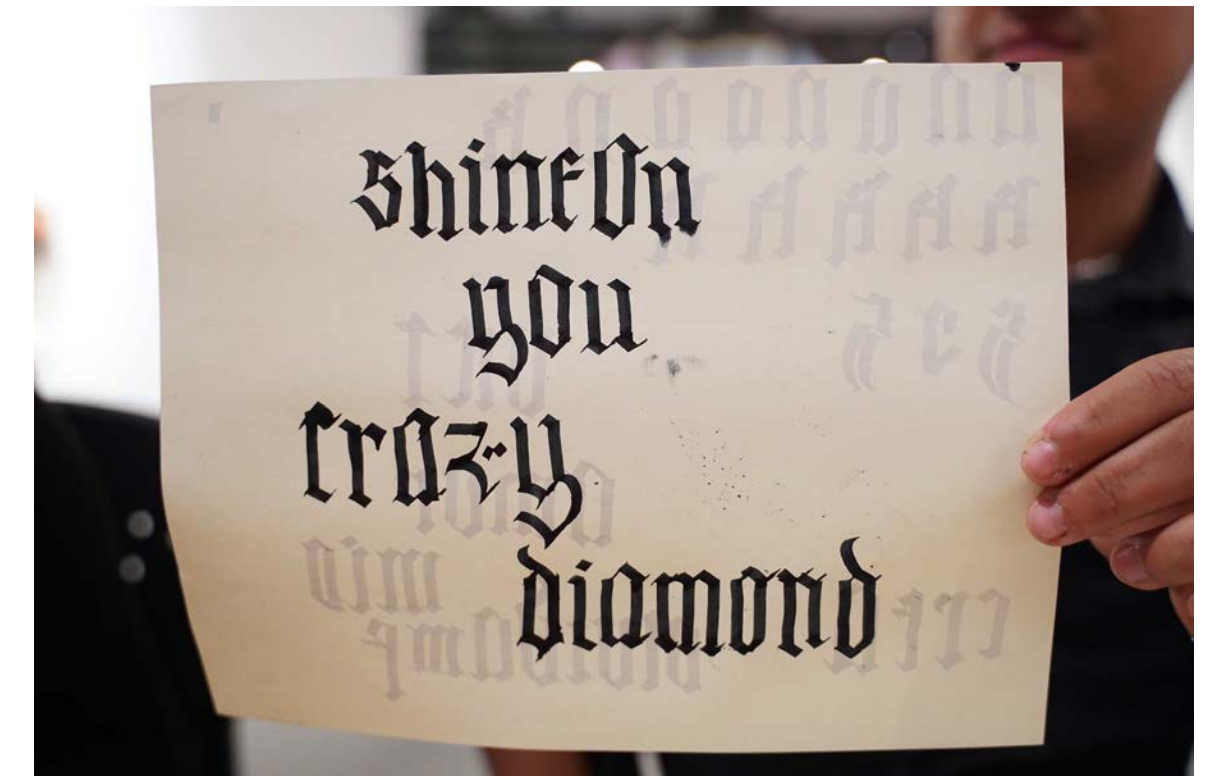 shineOn
you
crazy
diamond